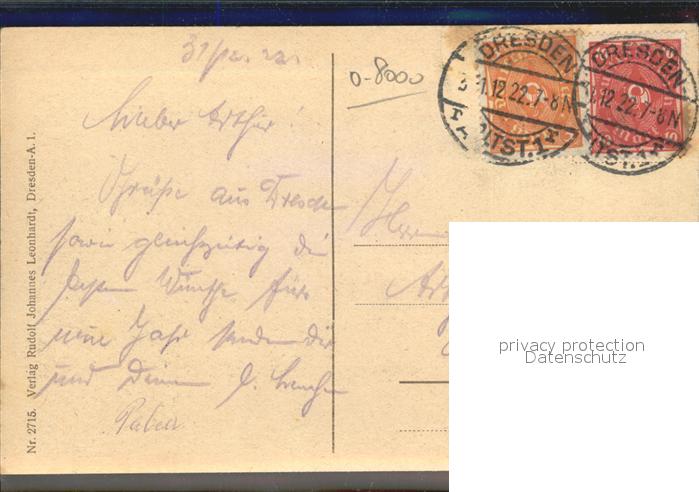 31/12. 22.
0-8000
DRESDEN
31.12.22.7-8N
ALTST.1
DRESDEN
31.12.22.7-8N
ALTST.1
Lieber Arthur!
Grüße aus Dresden
sowie gleichzeitig die
besten Wünsche fürs
neue Jahr senden Dir
und Deinen l.
Herrn
privacy protection
Datenschutz
Nr. 2715. Verlag Rudolf Johannes Leonhardt, Dresden-A. 1.